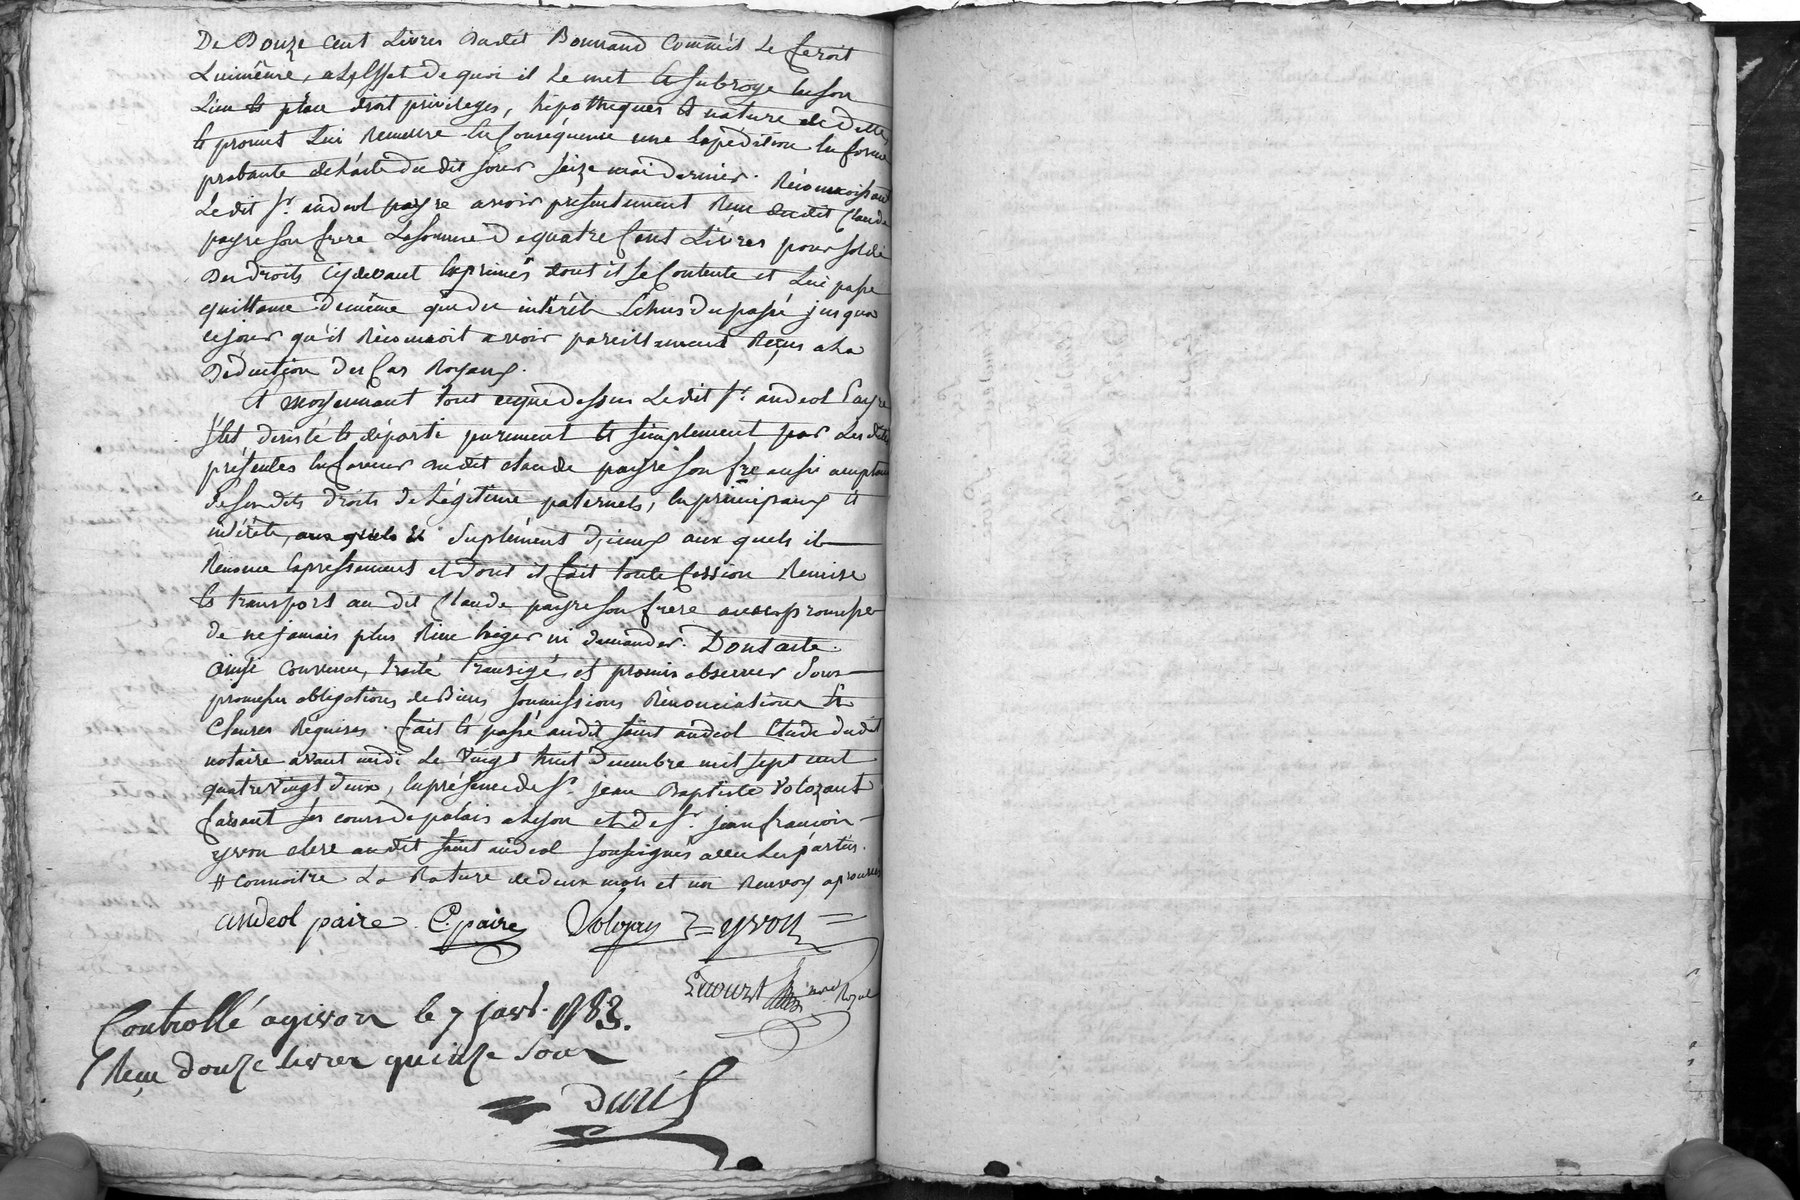 De Douze Cent Livres dudit Bonnand Comme il Le feroit
Luimême, a Leffet de quoi il Le met et subroge en son
Lieu et place droit privileges, hipotheques et nature de Dette
et promet Lui Remettre en Conséquence une Expédition en forme
probante de Lacte du dit jour seize mai dernier. Réconnoissant
Le dit Sr. andeol payre avoir présentement Reçu dudit Claude
payre son frere La somme De quatre Cent Livres pour solde
des droits cydevant Exprimés dont il se Contente et Lui passe
quittance de même que des intérêts Echus du passé jusqua
ce jour qu'il Réconnoit avoir pareillement Reçus a La
Déduction des Cas Royaux.
Et moyennant tout ceque dessus Le dit Sr. andeol Payre
s'est désisté et départi purement et simplement par Les dites
présentes en faveur dudit claude payre son frere aussi acceptant
de ses dits droits de Légitime paternels, en principaux et
intérêts, et Suplément d'iceux aux quels il
Rénonce Expressement et dont il fait toute Cession Remise
et transport au dit Claude payre son frere avec promesse
de ne jamais plus Rien Exiger ni demander. Dont acte.
ainsi convenu, traité transigé et promis observer sous
promesses obligations de Biens soumissions Rénonciations et
Clauses Réquises. fait et passé audit saint andeol Etude dudit
notaire avant midi Le vingt huit décembre mil sept cent
quatre vingt deux, en présence de Sr. jean Baptiste Volozant
faisant ses cours de palais a Lyon et de Sr. jean francois
yvon clerc au dit saint andeol soussignés avec Les parties.
# connoitre La Rature de deux mots et un Renvoy aprouvés
andeol paire. C. paire Volozan yvon
Royal
Controllé a givor le 7 janv. 1783.
Reçu douze livres quinze Sous